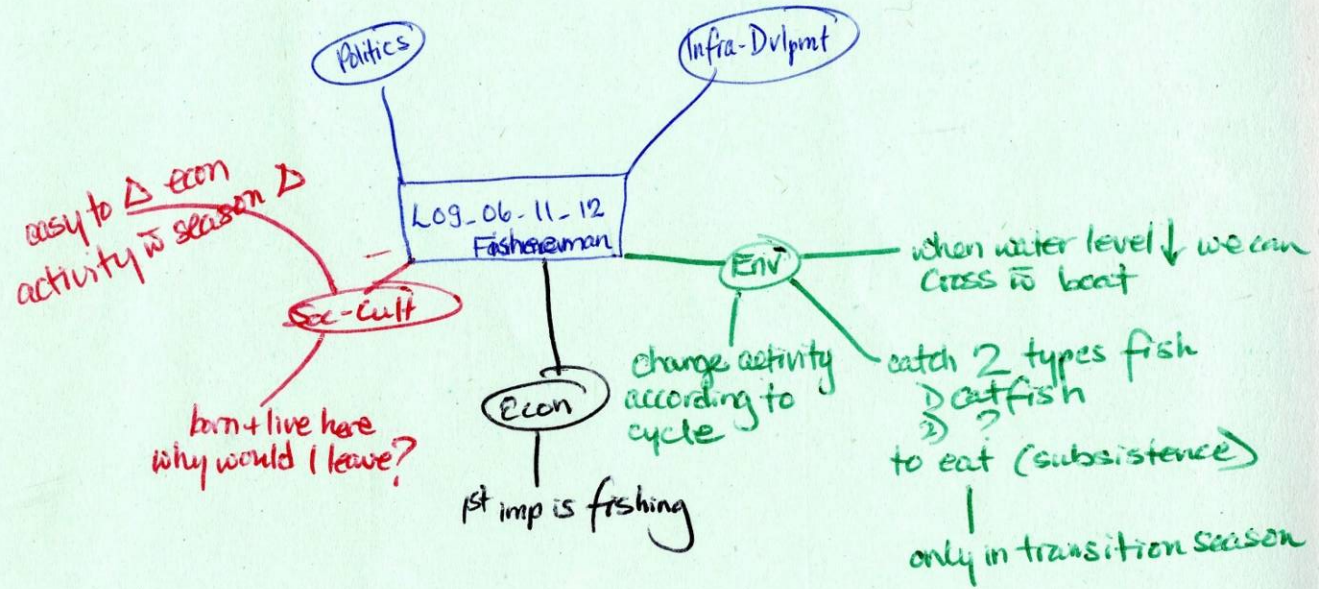 Politics
Infra-Dvlpmt
Log_06-11-12
Fisherman
easy to Δ econ
activity w̄ season Δ
Soc-Cult
born + live here
why would I leave?
Econ
1st imp is fishing
Env
when water level ↓ we can
cross w̄ boat
change activity
according to
cycle
catch 2 types fish
1) catfish
2) ?
to eat (subsistence)
only in transition season